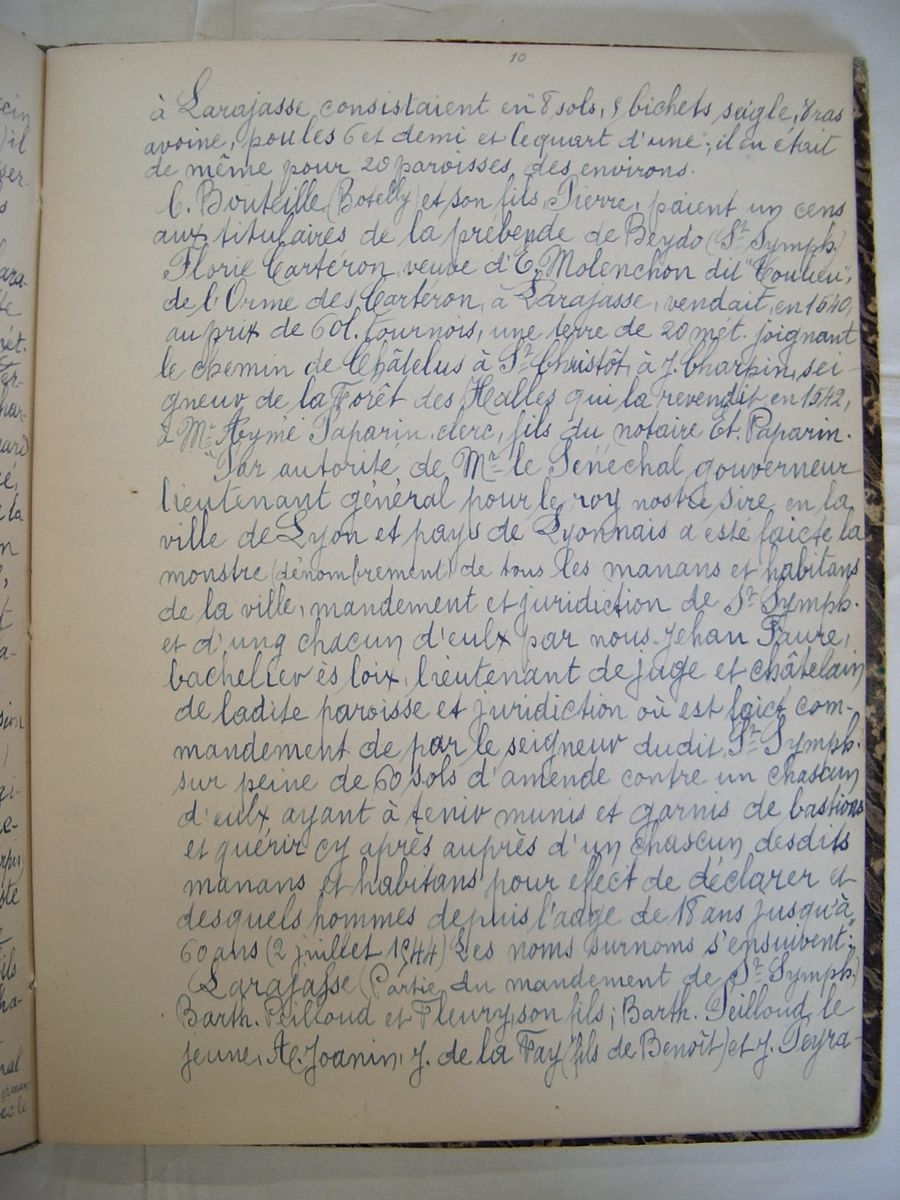 10
à Larajasse consistaient en "8 sols, 9 bichets seigle, 8 ras
avoine, poules 6 et demi et le quart d'une"; il en était
de même pour 20 paroisses des environs.
C. Bouteille (Botelly) et son fils Pierre, paient un cens
aux titulaires de la prébende de Beydo (St Symph.)
Florie Cartéron, veuve d'E. Molenchon dit "Coulieu",
de l'Orme des Cartéron, à Larajasse, vendait, en 1540,
au prix de 60l. tournois, une terre de 20 met. joignant
le chemin de Châtelus à St Christôt, à J. Charpin, sei-
gneur de la Forêt des Halles qui la revendit, en 1542,
à Mr Aymé Paparin, clerc, fils du notaire Et. Paparin.
"Par autorité de Mr le Sénéchal gouverneur
lieutenant général pour le roy nostre sire en la
ville de Lyon et pays de Lyonnais a esté faicte la
monstre (dénombrement) de tous les manans et habitans
de la ville, mandement et juridiction de St Symph.
et d'ung chacun d'eulx par nous Jehan Faure,
bachelier ès loix, lieutenant de juge et châtelain
de ladite paroisse et juridiction où est faict com-
mandement de par le seigneur dudit St Symph.
sur peine de 60 sols d'amende contre un chascun
d'eulx ayant à tenir munis et garnis de bastions
et guérir cy après auprès d'un chascun desdits
manans et habitans pour effect de déclarer et
desquels hommes depuis l'aage de 18 ans jusqu'à
60 ans (2 juillet 1544) Les noms surnoms s'ensuivent:"
Larajasse (Partie du mandement de St Symph.)
Barth. Peilloud et Fleury, son fils; Barth. Peilloud le
jeune, Joanin, J. de la Fay (fils de Benoît) et J. Peyra-